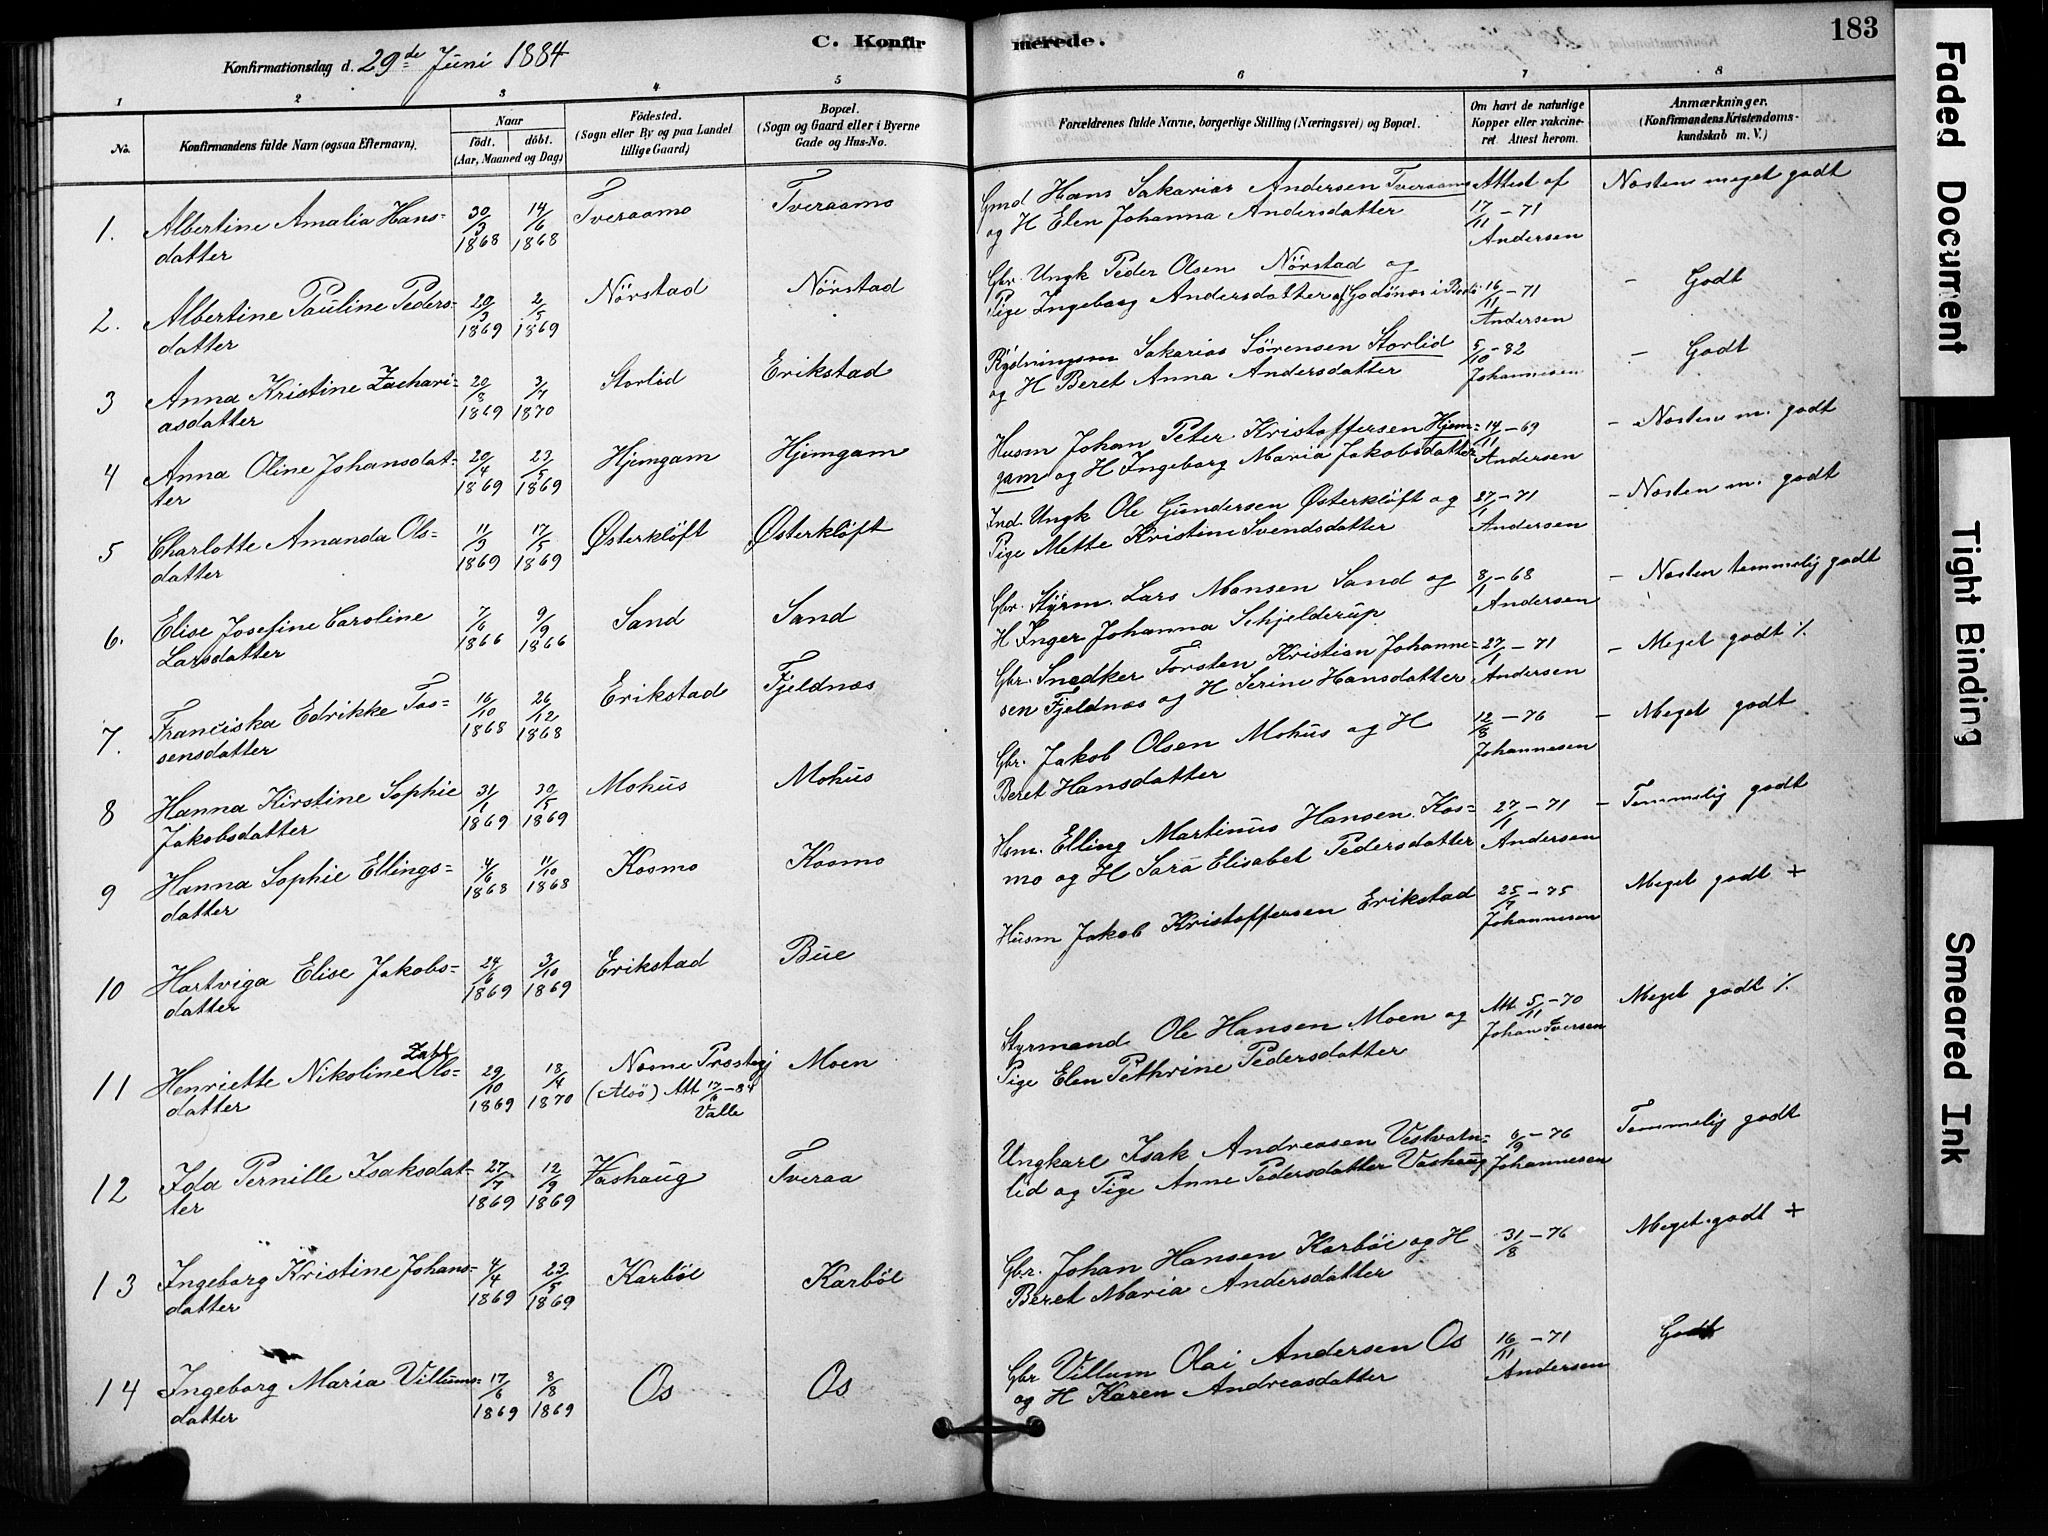 C. Konfirmerede.
183
Konfirmationsdag d. 29de Juni 1884
1 2 3 4 5 6 7 8
No.
Konfirmandens fulde Navn (ogsaa Efternavn).
Naar
født. døbt.
(Aar, Maaned og Dag)
Fødested.
(Sogn eller By og paa Landet
tillige Gaard)
Bopæl.
(Sogn og Gaard eller i Byerne
Gade og Hus-No.
Forældrenes fulde Navne, borgerlige Stilling (Næringsvei) og Bopæl.
Om havt de naturlige
Kopper eller vakcine-
ret. Attest herom.
Anmærkninger.
(Konfirmandens Kristendoms-
kundskab m. V.)
1. Albertine Amalia Hans- 30/3 14/6 Tveraamo Tveraamo
datter 1868 1868
Gmd Hans Sakarias Andersen Tveraamo Attest af Næsten meget godt
og H Elen Johanna Andersdatter 17/11 - 71
Andersen
2. Albertine Pauline Peders- 20/3 2/5 Nørstad Nørstad
datter 1869 1869
Gbr. Ungk Peder Olsen Nørstad og
Pige Ingeborg Andersdatter af Godønes i Bodø 16/11 - 71 - Godt
Andersen
3 Anna Kristine Zachari- 20/8 3/4 Storlid Erikstad
asdatter 1869 1870
Rydningsm Sakarias Sørensen Storlid 5/10 - 82 - Godt
og H Beret Anna Andersdatter Johannesen
4 Anna Oline Johansdat- 20/4 23/5 Hjemgam Hjemgam
ter 1869 1869
Husm Johan Peter Kristoffersen Hjem- 14/11 - 69 - Næsten m. godt
gam og H Ingeborg Maria Jakobsdatter Andersen
5 Charlotte Amanda Ols- 11/3 17/5 Østerkløft Østerkløft
datter 1869 1869
Ind. Ungk Ole Gundersen Østerkløft og 27/1 - 71 - Næsten m. godt
Pige Mette Kristine Svendsdatter Andersen
6. Elise Josefine Caroline 7/6 9/9 Sand Sand
Larsdatter 1866 1866
Gbr. Styrm. Lars Monsen Sand og 8/1 - 68 - Næsten temmelig godt
H Inger Johanna Schjelderup Andersen
7. Franciska Edrikke Tos- 16/10 26/12 Erikstad Fjeldnæs
sensdatter 1868 1868
Gbr. Snedker Torsten Kristian Johanne- 27/1 - 71 - Meget godt ⁒
sen Fjeldnæs og H Serine Hansdatter Andersen
8 Hanna Kirstine Sophie 31/1 30/5 Mohus Mohus
Jakobsdatter 1869 1869
Gbr. Jakob Olsen Mohus og H 12/8 - 76 - Meget godt
Beret Hansdatter Johannesen
9 Hanna Sophie Ellings- 4/6 11/10 Kosmo Kosmo
datter 1868 1868
Hsm. Elling Martinus Hansen Kos- 27/1 - 71 - Temmelig godt
mo og H Sara Elisabet Pedersdatter Andersen
10 Hartviga Elise Jakobs- 24/6 3/10 Erikstad Bue
datter 1869 1869
Husm Jakob Kristoffersen Erikstad 25/9 - 75 Meget godt +
Johannesen
11 Henriette Nikoline Zahl Ols- 29/10 18/4 Nesne Prostegj Moen
datter 1869 1870 (Alsø) Att 17/6 - 84
Valle
Styrmand Ole Hansen Moen og Att. 5/11 - 70 Meget godt ⁒
Pige Elen Pethrine Pedersdatter Johan Iversen
12 Ida Pernille Isaksdat- 27/7 12/9 Vashaug Tveraa
ter 1869 1869
Ungkarl Isak Andreasen Vestvatn- 8/9 - 76 Temmelig godt
lid og Pige Anne Pedersdatter Vashaug Johannesen
13 Ingeborg Kristine Johans- 4/4 23/5 Karbøl Karbøl
datter 1869 1869
Gbr. Johan Hansen Karbøl og H 31/8 - 76 Meget godt +
Beret Maria Andersdatter
14 Ingeborg Maria Villums- 17/6 8/8 Os Os
datter 1869 1869
Gbr Villum Olai Andersen Os 16/11 - 71 Godt
og H Karen Andreasdatter Andersen
Faded Document
Tight Binding
Smeared Ink